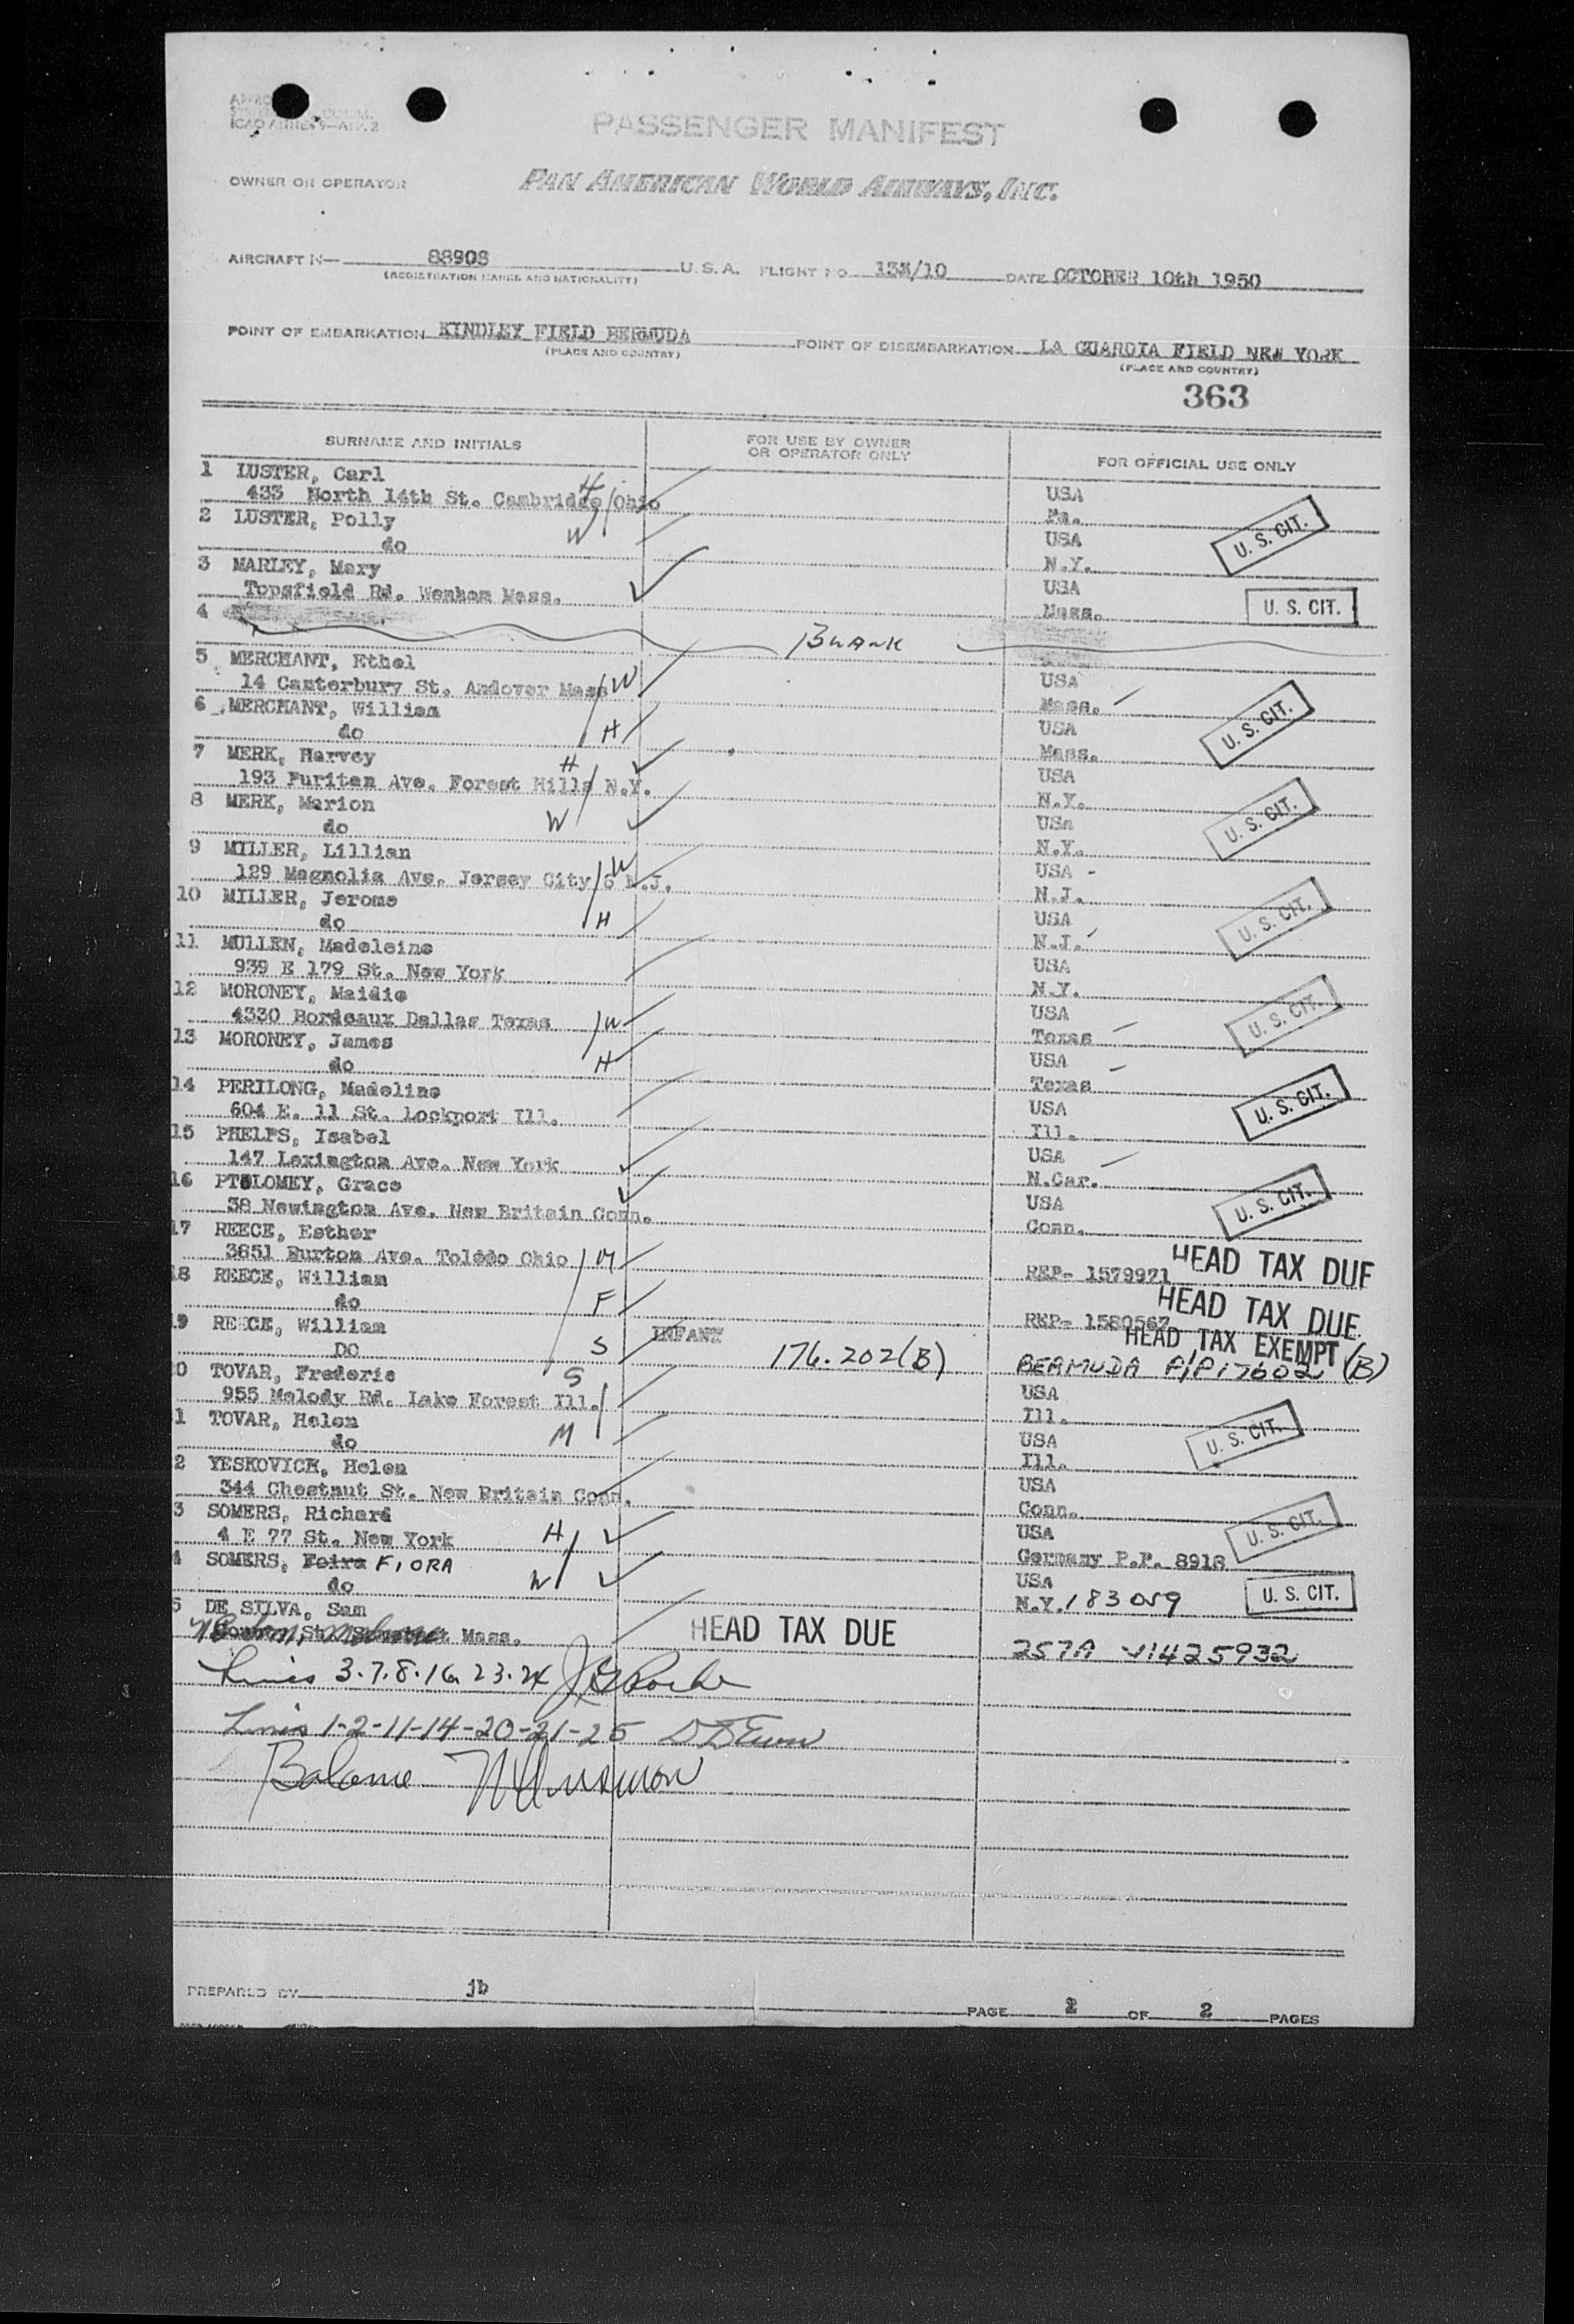 PASSENGER MANIFEST
OWNER OR OPERATOR PAN AMERICAN WORLD AIRWAYS, INC.
AIRCRAFT N— 88908 U. S. A. FLIGHT NO. 133/10 DATE OCTOBER 10th 1950
(REGISTRATION MARKS AND NATIONALITY)
POINT OF EMBARKATION KINDLEY FIELD BERMUDA POINT OF DISEMBARKATION LA GUARDIA FIELD NEW YORK
(PLACE AND COUNTRY) (PLACE AND COUNTRY)
363
SURNAME AND INITIALS FOR USE BY OWNER OR OPERATOR ONLY FOR OFFICIAL USE ONLY
1 LUSTER, Carl USA
433 North 14th St. Cambridge Ohio H Pa.
2 LUSTER, Polly W USA U. S. CIT.
do N.Y.
3 MARLEY, Mary USA
Topsfield Rd. Wenham Mass. Mass. U. S. CIT.
4 BLANK
5 MERCHANT, Ethel USA
14 Canterbury St. Andover Mass W Mass.
6 MERCHANT, William USA U. S. CIT.
do H Mass.
7 MERK, Harvey H USA
193 Puritan Ave. Forest Hills N.Y. N.Y.
8 MERK, Marion USA U. S. CIT.
do W N.Y.
9 MILLER, Lillian W USA
129 Magnolia Ave. Jersey City 6 N.J. N.J.
10 MILLER, Jerome USA U. S. CIT.
do H N.J.
11 MULLEN, Madeleine USA
939 E 179 St. New York N.Y.
12 MORONEY, Maidie USA U. S. CIT.
4330 Bordeaux Dallas Texas W Texas
13 MORONEY, James USA
do H Texas
14 PERILONG, Madeline USA U. S. CIT.
604 E. 11 St. Lockport Ill. Ill.
15 PHELPS, Isabel USA
147 Lexington Ave. New York N.Car.
16 PTOLOMEY, Grace USA U. S. CIT.
38 Newington Ave. New Britain Conn. Conn.
17 REECE, Esther
3851 Burton Ave. Toledo Ohio M REP- 1579921 HEAD TAX DUE
18 REECE, William
do F REP- 1580567 HEAD TAX DUE
19 REECE, William INFANT HEAD TAX EXEMPT
DO S 176.202(B) BERMUDA P/P 17602 (B)
0 TOVAR, Frederic S USA
955 Melody Rd. Lake Forest Ill. Ill.
1 TOVAR, Helen USA U. S. CIT.
do M Ill.
2 YESKOVICH, Helen USA
344 Chestnut St. New Britain Conn. Conn.
3 SOMERS, Richard USA U. S. CIT.
4 E 77 St. New York H Germany P.P. 8918
4 SOMERS, Foira FIORA USA
do W N.Y. 183059 U. S. CIT.
5 DE SILVA, Sam
Mass. HEAD TAX DUE 257A V1425932
Lines 3.7.8.16 23.24
Lines 1-2-11-14-20-21-25
Balance
PREPARED BY jb PAGE 2 OF 2 PAGES